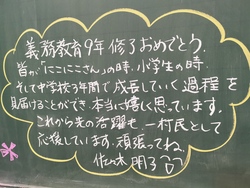 義務教育9年修了おめでとう.
皆が「にこにこさん」の時、小学生の時、
そして中学校3年間で成長していく過程を
見届けることができ、本当に嬉しく思っています。
これから先の活躍も、一村民として
応援しています。頑張ってね、
佐々木明子